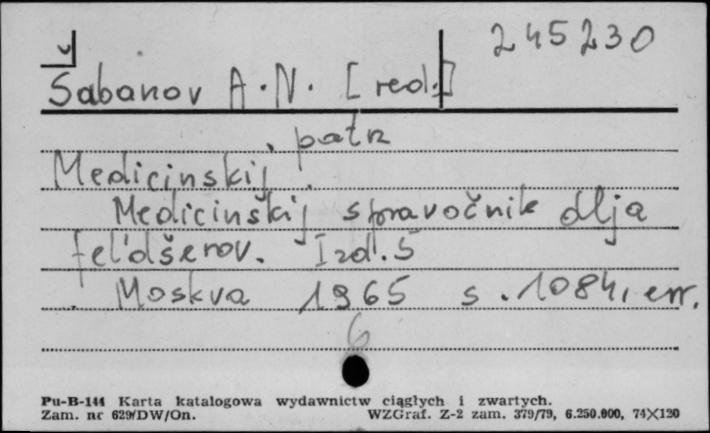 245230
Šabanov A.N. [red.]
, patrz
Medicinskij
Medicinškij spravočnik dlja
fel'dšerov. Izd. 5
Moskva 1965 s. 1084, err.
6
Pu-B-144 Karta katalogowa wydawnictw ciągłych i zwartych.
Zam. nr 629/DW/On. WZGraf. Z-2 zam. 379/79, 6.250.000, 74×120